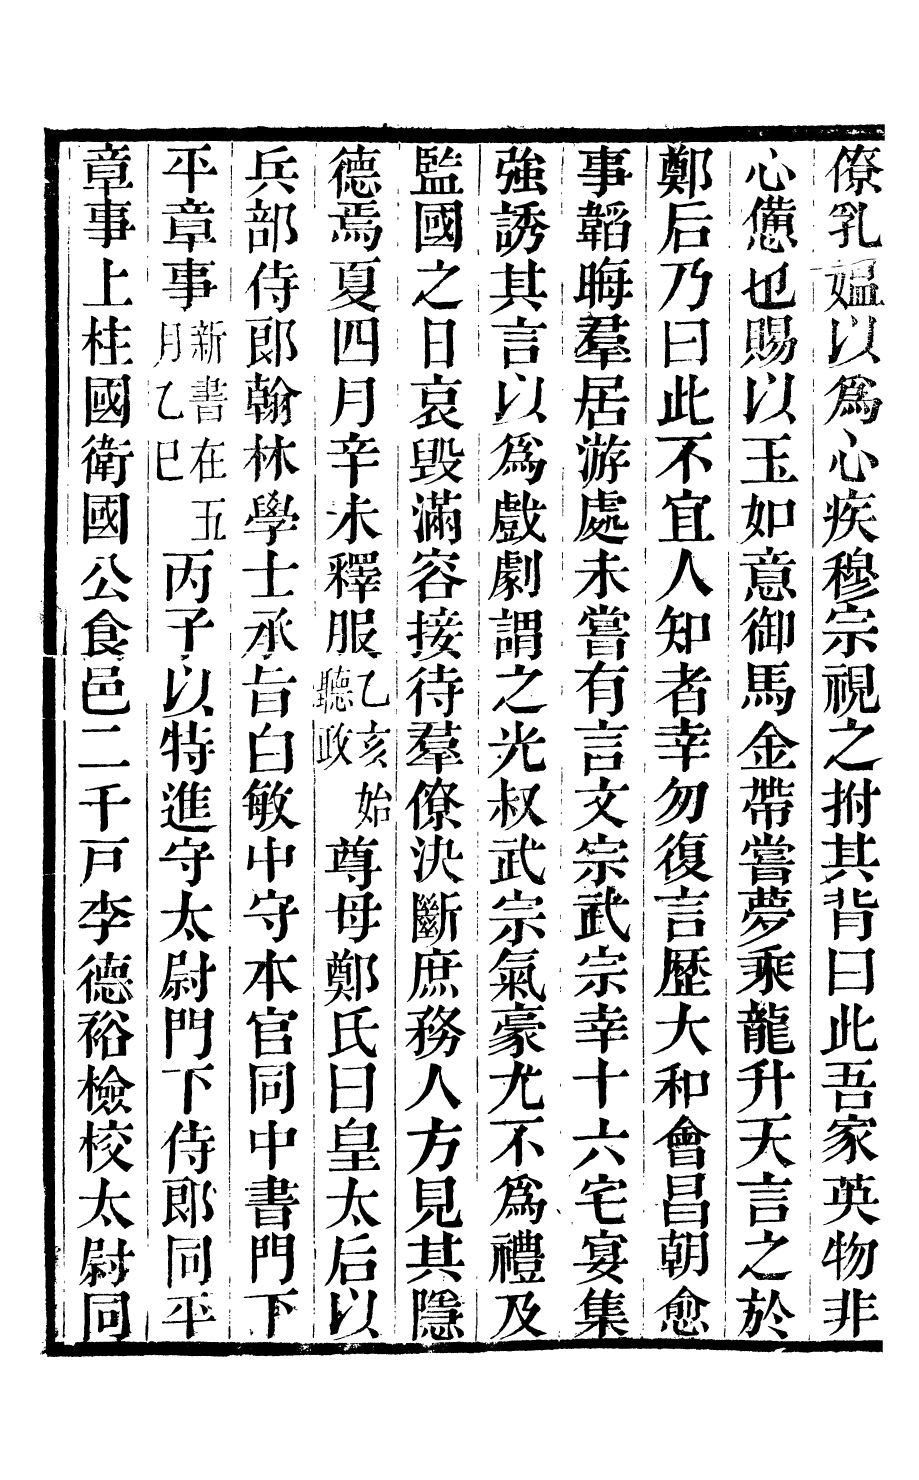 僚乳媼以爲心疾穆宗視之拊其背曰此吾家英物非
心憊也賜以玉如意御馬金帶嘗夢乘龍升天言之於
鄭后乃曰此不宜人知者幸勿復言歷大和會昌朝愈
事韜晦羣居游處未嘗有言文宗武宗幸十六宅宴集
強誘其言以爲戲劇謂之光叔武宗氣豪尤不爲禮及
監國之日哀毀滿容接待羣僚決斷庶務人方見其隱
德焉夏四月辛未釋服乙亥始聽政尊母鄭氏曰皇太后以
兵部侍郎翰林學士承旨白敏中守本官同中書門下
平章事新書在五月乙巳丙子以特進守太尉門下侍郎同平
章事上柱國衛國公食邑二千戸李德裕檢校太尉同